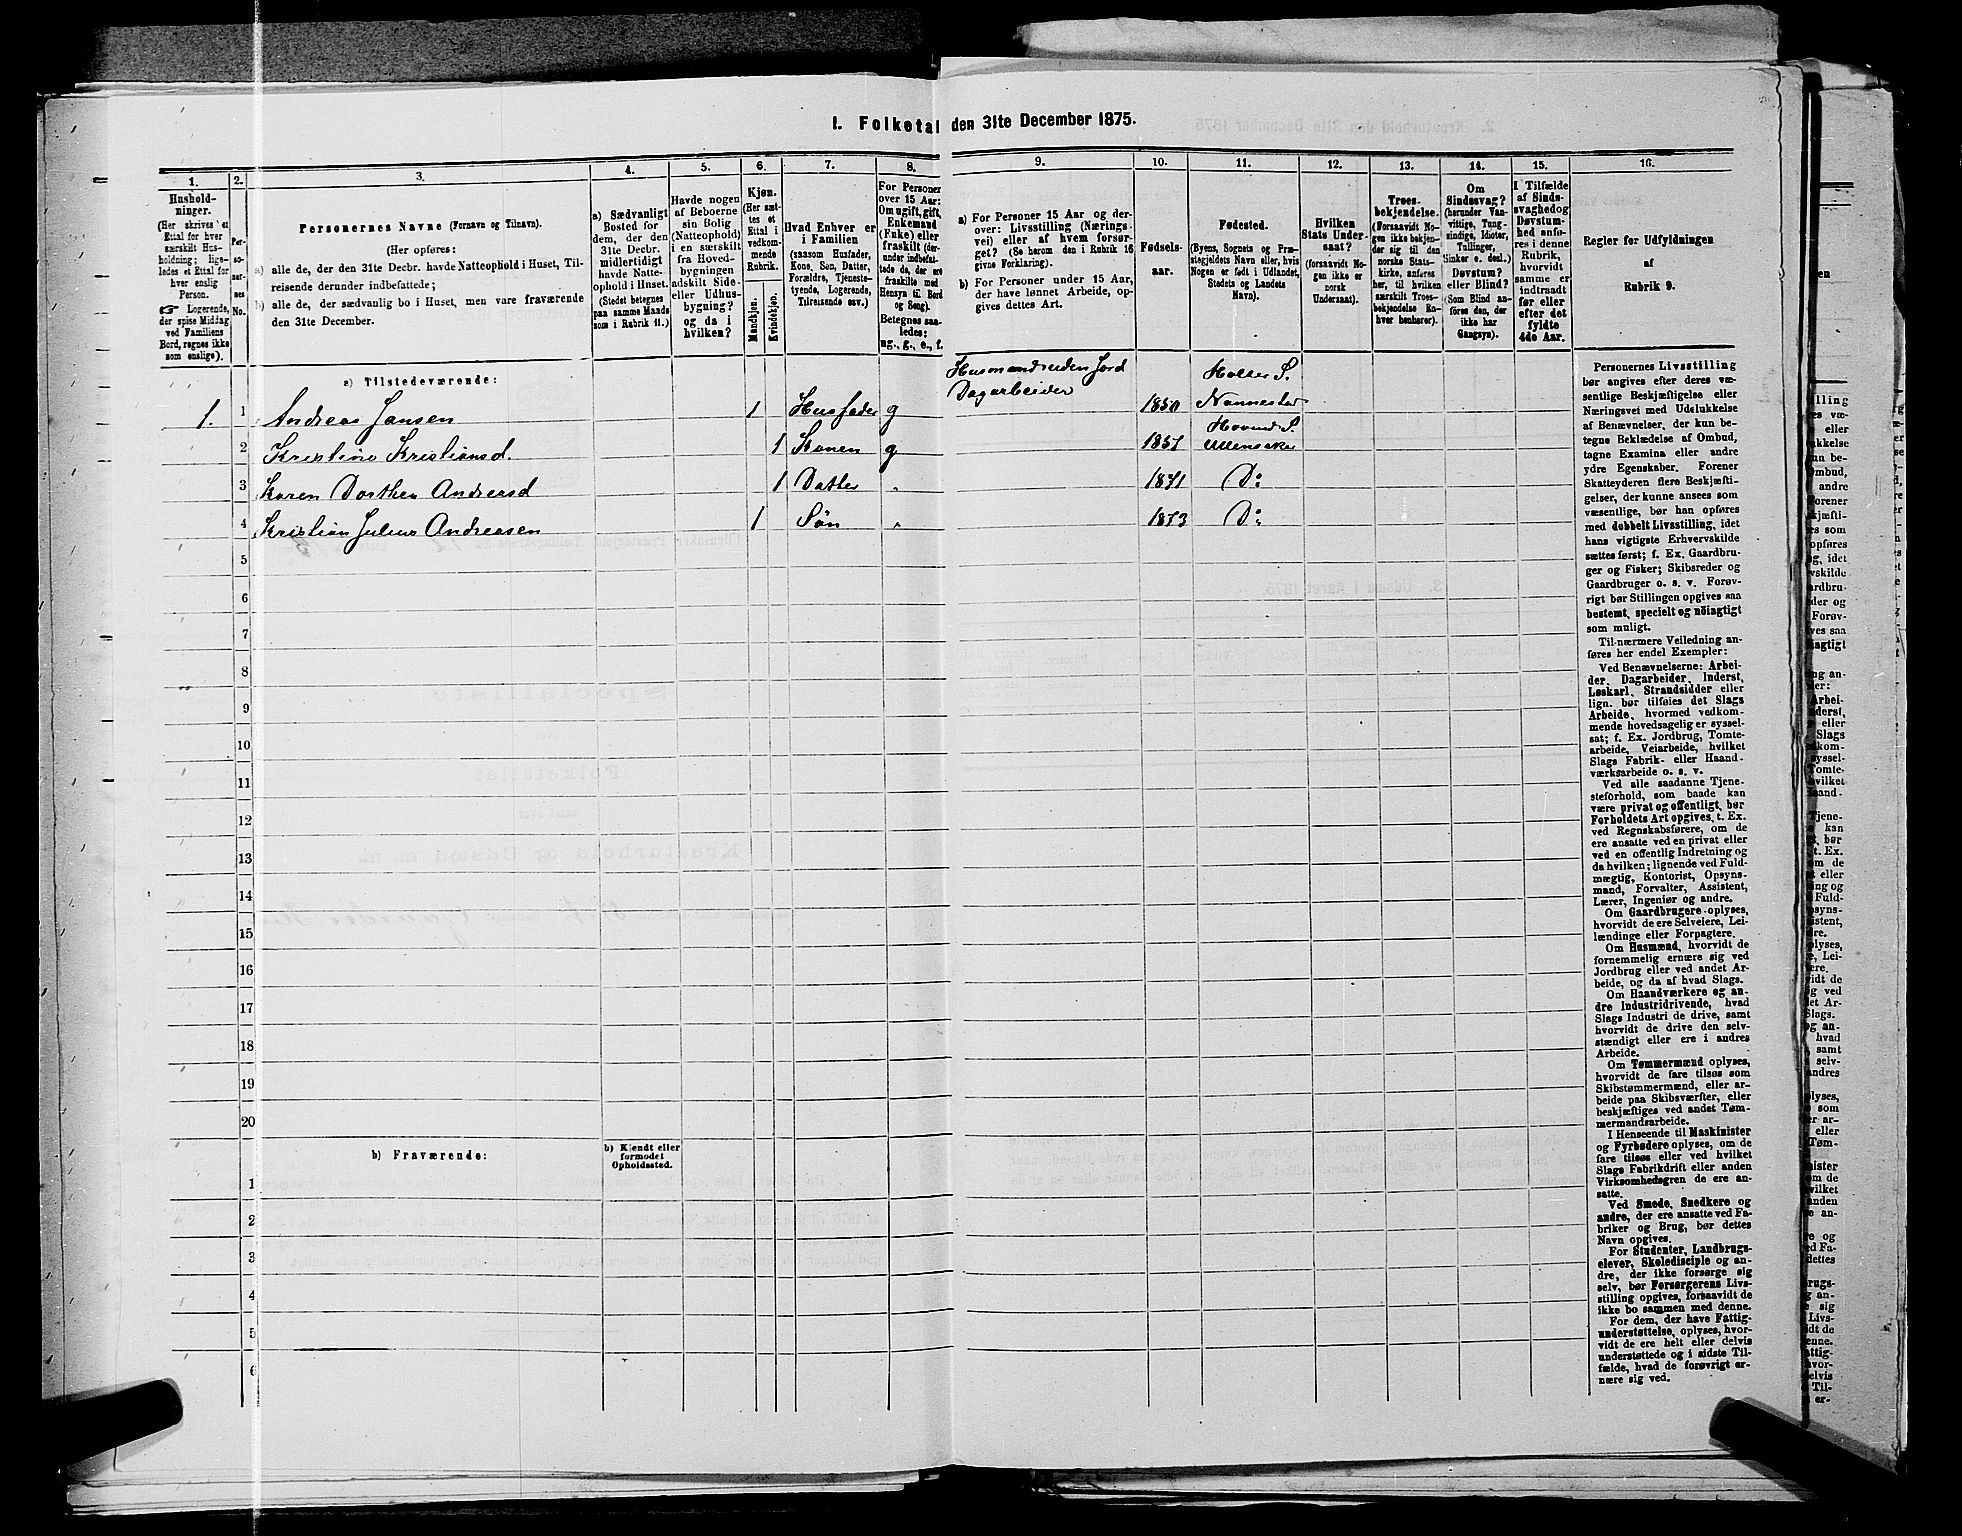 1. Folketal den 31te December 1875.
1.
2.
3.
4.
5.
6.
7.
8.
9.
10.
11.
12.
13.
14.
15.
16.
Hushold-
ninger.
(Her skrives et
Ettal for hver
særskilt Hus-
holdning; lige-
ledes et Ettal for
hver enslig
Person.
☞ Logerende,
der spise Middag
ved Familiens
Bord, regnes ikke
som enslige).
Per-
so-
ner-
nes
No.
Personernes Navne (Fornavn og Tilnavn).
(Her opføres:
a) alle de, der den 31te Decbr. havde Natteophold i Huset, Til-
reisende derunder indbefattede;
b) alle de, der sædvanlig bo i Huset, men vare fraværende
den 31te December.
a) Sædvanligt
Bosted for
dem, der den
31te Decbr.
midlertidigt
havde Natte-
ophold i Huset.
(Stedet betegnes
paa samme Maade
som i Rubrik 11.)
Havde nogen
af Beboerne
sin Bolig
(Natteophold)
i en særskilt
fra Hoved-
bygningen
adskilt Side-
eller Udhus-
bygning?
og da i
hvilken?
Kjøn.
(Her sæt-
tes et
Ettal i
vedkom-
mende
Rubrik.
Mandkjøn.
Kvindekjøn.
Hvad Enhver er
i Familien
(saasom Husfader,
Kone, Søn, Datter,
Forældre, Tjeneste-
tyende, Logerende,
Tilreisende osv.)
For Personer
over 15 Aar:
Om ugift, gift,
Enkemand
(Enke) eller
fraskilt (der-
under indbefat-
tede de, der ere
fraskilte med
Hensyn til Bord
og Seng).
Betegnes saa-
ledes:
ug., g., e., f.
a) For Personer 15 Aar og der-
over: Livsstilling (Nærings-
vei) eller af hvem forsør-
get? (Se herom den i Rubrik 16
givne Forklaring).
b) For Personer under 15 Aar,
der have lønnet Arbeide, op-
gives dettes Art.
Fødsels-
aar.
Fødested.
(Byens, Sognets og Præ-
stegjeldets Navn eller, hvis
Nogen er født i Udlandet,
Stedets og Landets
Navn).
Hvilken
Stats Under-
saat?
(forsaavidt No-
gen ikke er
norsk
Undersaat).
Troes-
bekjendelse.
(Forsaavidt No-
gen ikke bekjen-
der sig til den
norske Stats-
kirke, anføres
her, til hvilken
særskilt Troes-
bekjendelse En-
hver henhører).
Om
Sindssvag?
(herunder Van-
vittige, Tung-
sindige, Idioter,
Tullinger,
Sinker o. desl.)
Døvstum?
eller Blind?
(Som Blind an-
føres den, der
ikke har
Gangsyn).
I Tilfælde
af Sinds-
svaghed og
Døvstum-
hed anfø-
res i denne
Rubrik,
hvorvidt
samme er
indtraadt
før eller
efter det
fyldte
4de Aar.
Regler for Udfyldningen
af
Rubrik 9.
a) Tilstedeværende:
Husmand uden Jord
Dagarbeider
Holter S.
1. 1 Andreas Jansen 1 Husfader g 1850 Nannestad
Hovind S.
2 Kristine Kristiansd. 1 Konen g 1851 Ullensaker
3 Karen Dorthea Andreasd 1 Datter " 1871 Do
4 Kristian Julius Andreasen 1 Søn " 1873 Do
5
6
7
8
9
10
11
12
13
14
15
16
17
18
19
20
b) Fraværende:
b) Kjendt eller
formodet
Opholdssted.
1
2
3
4
5
6
Personernes Livsstilling
bør angives efter deres væ-
sentlige Beskjæftigelse eller
Næringsvei med Udelukkelse
af Benævnelser, der kun be-
tegne Beklædelse af Ombud,
tagne Examina eller andre
ydre Egenskaber. Forener
Skatteyderen flere Beskjæfti-
gelser, der kunne ansees som
væsentlige, bør han opføres
med dobbelt Livsstilling, idet
hans vigtigste Erhvervskilde
sættes først; f. Ex. Gaardbru-
ger og Fisker; Skibsreder og
Gaardbruger o. s. v. Forøv-
rigt bør Stillingen opgives saa
bestemt, specielt og nöiagtigt
som muligt.
Til nærmere Veiledning an-
føres her endel Exempler:
Ved Benævnelserne: Arbei-
der, Dagarbeider, Inderst,
Løskarl, Strandsidder eller
lign. bør tilføies det Slags
Arbeide, hvormed vedkom-
mende hovedsagelig er syssel-
sat; f. Ex. Jordbrug, Tomte-
arbeide, Veiarbeide, hvilket
Slags Fabrik- eller Haand-
værksarbeide o. s. v.
Ved alle saadanne Tjene-
steforhold, som baade kan
være privat og offentligt, bør
Forholdets Art opgives, t. Ex.
ved Regnskabsførere, om de
ere ansatte ved en privat eller
ved en offentlig Indretning og
da hvilken; lignende ved Fuld-
mægtig, Kontorist, Opsyns-
mand, Forvalter, Assistent,
Lærer, Ingeniør og andre.
Om Gaardbrugere oplyses,
hvorvidt de ere Selveiere, Lei-
lændinge eller Forpagtere.
Om Husmænd, hvorvidt de
fornemmelig ernære sig ved
Jordbrug eller ved andet Ar-
beide, og da af hvad Slags.
Om Haandværkere og an-
dre Industridrivende, hvad
Slags Industri de drive, samt
hvorvidt de drive den selv-
stændigt eller ere i andres
Arbeide.
Om Tømmermænd oplyses,
hvorvidt de fare tilsøs som
Skibstømmermænd, eller ar-
beide paa Skibsværfter, eller
beskjæftiges ved andet Tøm-
mermandsarbeide.
I Henseende til Maskinister
og Fyrbødere oplyses, om de
fare tilsøs eller ved hvilket
Slags Fabrikdrift eller anden
Virksomhedsgren de ere an-
satte.
Ved Smede, Snedkere og
andre, der ere ansatte ved Fa-
briker og Brug, bør dettes
Navn opgives.
For Studenter, Landbrugs-
elever, Skoledisciple og an-
dre, der ikke forsørge sig
selv, bør Forsørgerens Livs-
stilling opgives, forsaavidt de
ikke bo sammen med denne.
For dem, der have Fattig-
understøttelse, oplyses, hvor-
vidt de ere helt eller delvis
understøttede og i sidste Til-
fælde, hvad de forøvrigt er-
nære sig ved.